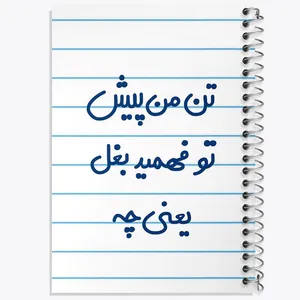 تن من پیش
تو فهمید بغل
یعنی چه